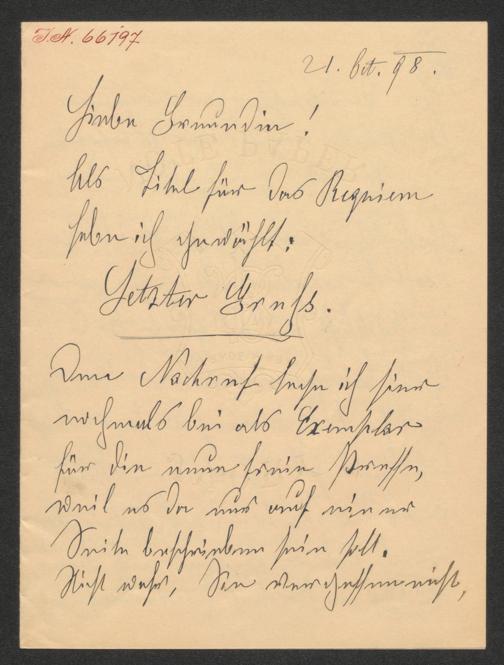 I.N. 66197
21. Oct. 98.
Liebe Freundin!
Als Titel für das Requiem
habe ich gewählt:
Letzter Gruß.
Den Nachruf lege ich hier
nochmals bei als Exemplar
für die neue freie Presse,
weil es da nur auf einer
Seite beschrieben sein soll.
Nicht wahr, Sie vergessen nicht,